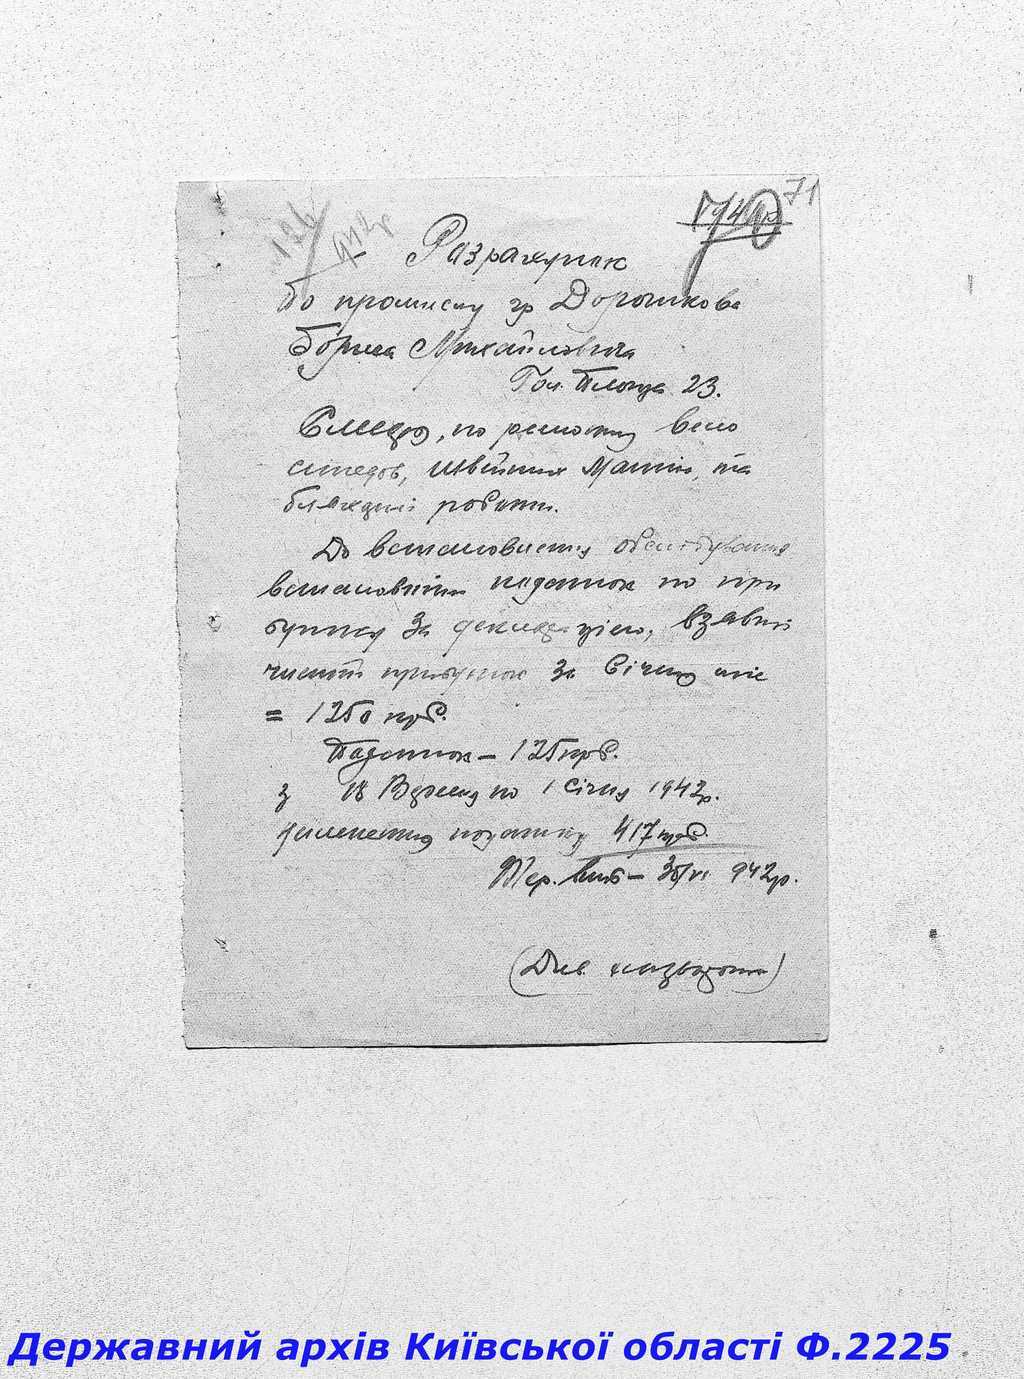 71
126
942р
Разрахунак
По промислу гр Дорошкова
Бориса Михайловича
Гол. Площа 23.
Слюсар, по ремонту вело
сипедов, швейних машин, та
бляхарні роботи.
До встановлення обслідування
встановлен податок по при
бутку за декларацією, взявши
чистий прибуток за Січень міс
= 1250 крб.
Податок – 125 крб.
з 18 Вересня по 1 січня 1942р.
податку 417 крб.
Тер. вип – 30/VI 942р.
(Див. на звороті)
Державний архів Київської області Ф.2225